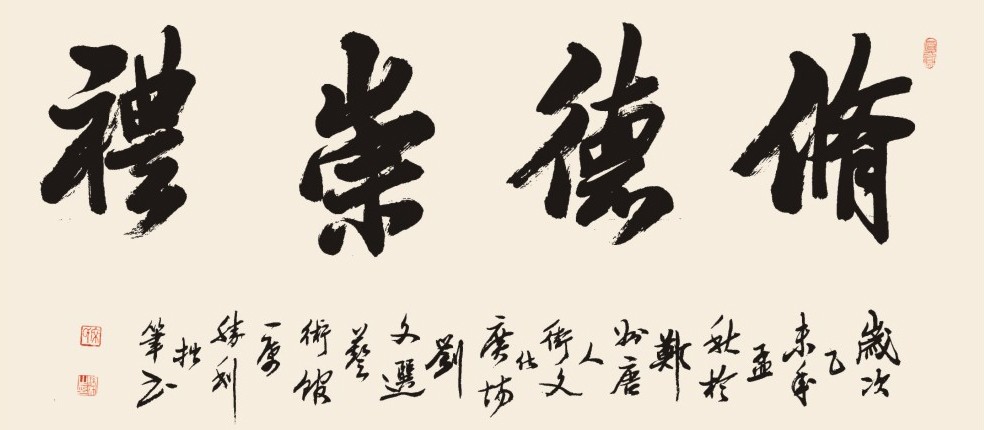 脩德崇禮
歲次
乙
未年
孟
秋於
鄭
州唐
人
街文
化
廣場
劉
文選
藝
術館
一
勝利
拙
筆書